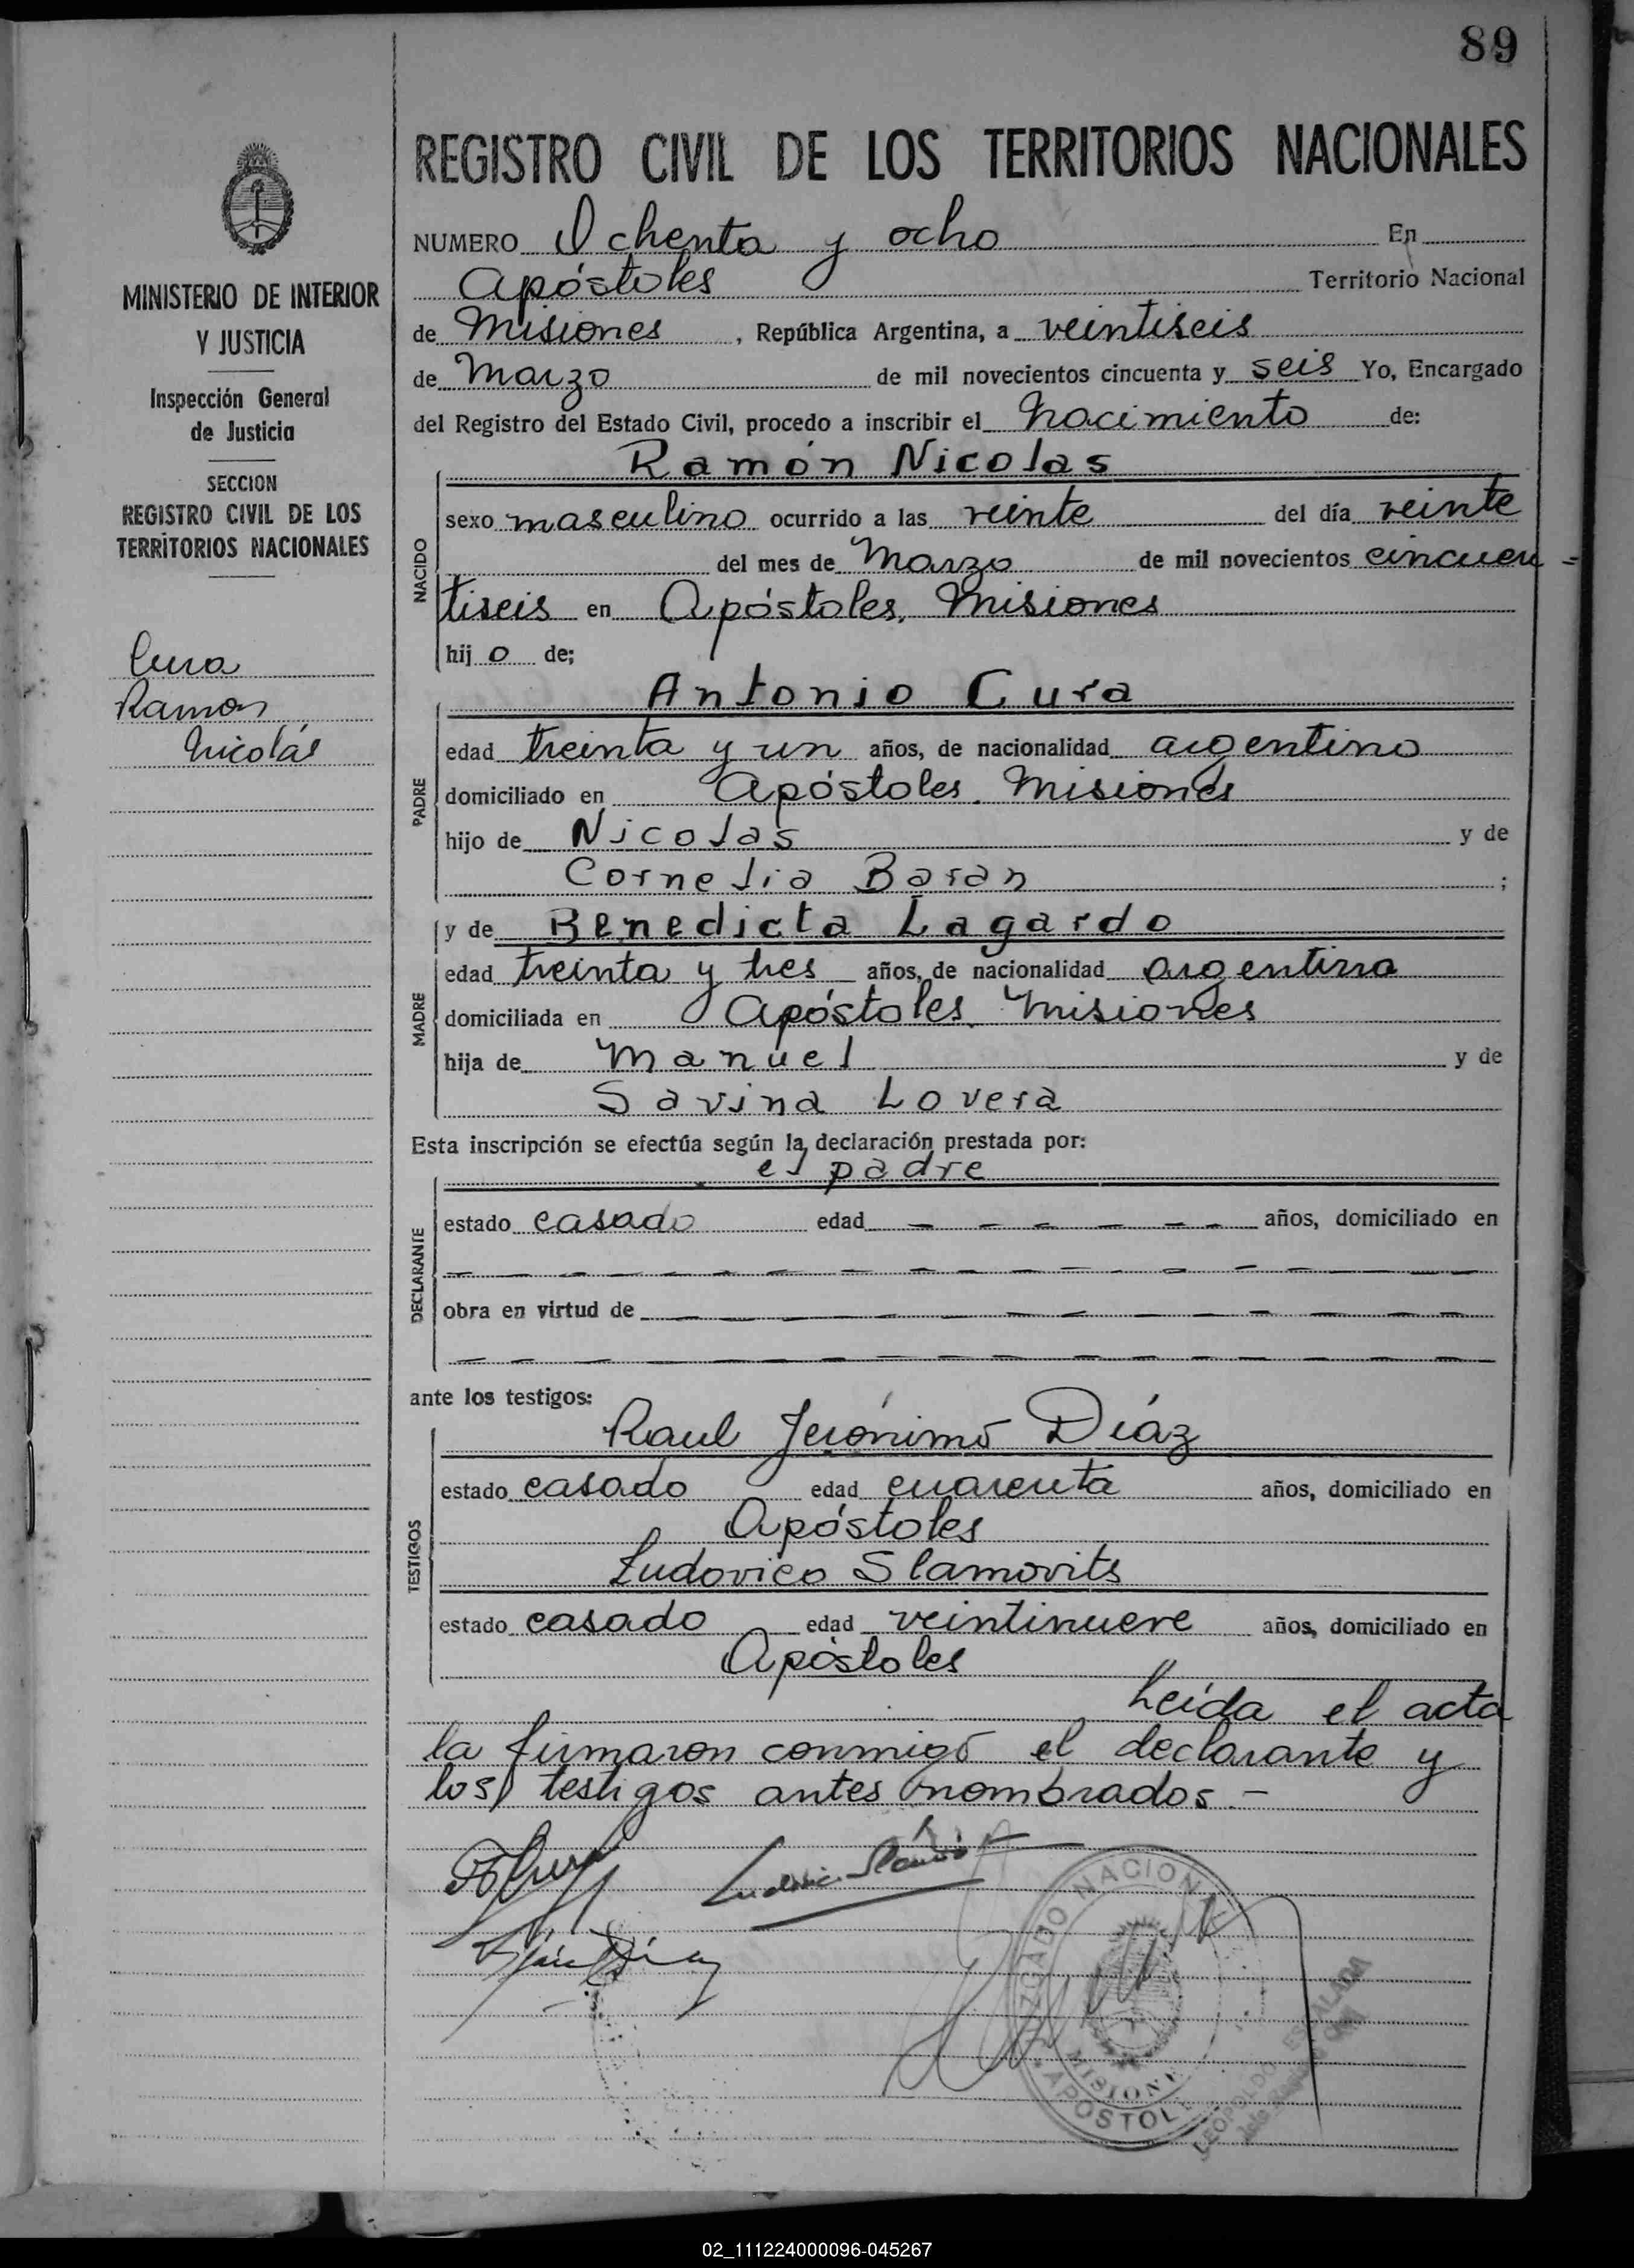 89
REGISTRO CIVIL DE LOS TERRITORIOS NACIONALES
MINISTERIO DE INTERIOR
Y JUSTICIA
Inspección General
de Justicia
SECCION
REGISTRO CIVIL DE LOS
TERRITORIOS NACIONALES
Cura
Ramon
Nicolás
NUMERO Ochenta y ocho En
Apóstoles Territorio Nacional
de Misiones, República Argentina, a veintiseis
de Marzo de mil novecientos cincuenta y seis Yo, Encargado
del Registro del Estado Civil, procedo a inscribir el Nacimiento de:
NACIDO
Ramón Nicolas
sexo masculino ocurrido a las veinte del día veinte
del mes de Marzo de mil novecientos cincuen=
tiseis en Apóstoles, Misiones
hij o de;
PADRE
Antonio Cura
edad treinta y un años, de nacionalidad argentino
domiciliado en Apóstoles. Misiones
hijo de Nicolas y de
Cornelia Baran ;
MADRE
y de Benedicta Lagardo
edad treinta y tres años, de nacionalidad argentina
domiciliada en Apóstoles. Misiones
hija de Manuel y de
Savina Lovera
Esta inscripción se efectúa según la declaración prestada por:
DECLARANTE
el padre
estado casado edad - - - - - - años, domiciliado en
obra en virtud de
ante los testigos:
TESTIGOS
Raul Jerónimo Díaz
estado casado edad cuarenta años, domiciliado en
Apóstoles
Ludovico Slamovits
estado casado edad veintinueve años, domiciliado en
Apóstoles
Leída el acta
la firmaron conmigo el declarante y
los testigos antes nombrados.-
JUZGADO NACIONAL
MISIONES
APOSTOLES
LEOPOLDO ESCALADA
02_111224000096-045267